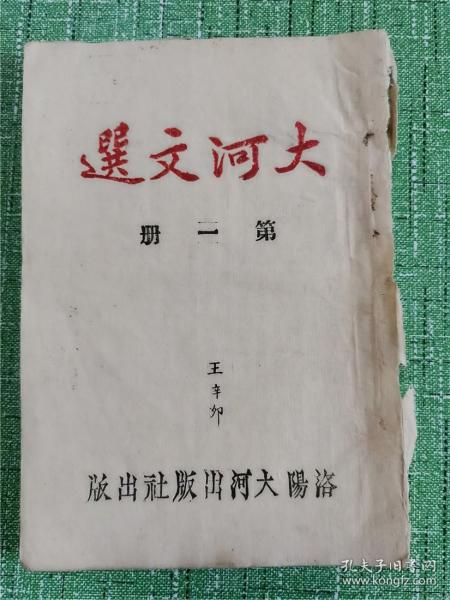 大河文選
第二册
王辛卯
洛陽大河出版社出版
孔夫子旧书网
www.kongfz.com